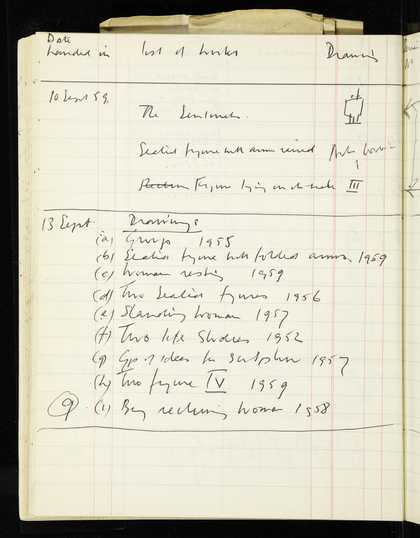 Date
handed in list of works Drawing
10 Sept 59.
The Sentinels.
Seated figure with arms raised
Figure lying on its side III
13 Sept Drawings
(a) Group 1955
(b) Seated figure with folded arms 1959
(c) Woman resting 1959
(d) Two Seated figures 1956
(e) Standing Woman 1957
(f) Two life Studies 1952
(g) Gp of Ideas for Sculpture 1957
(h) Two figure IV 1959
9 (i) Big reclining woman 1958